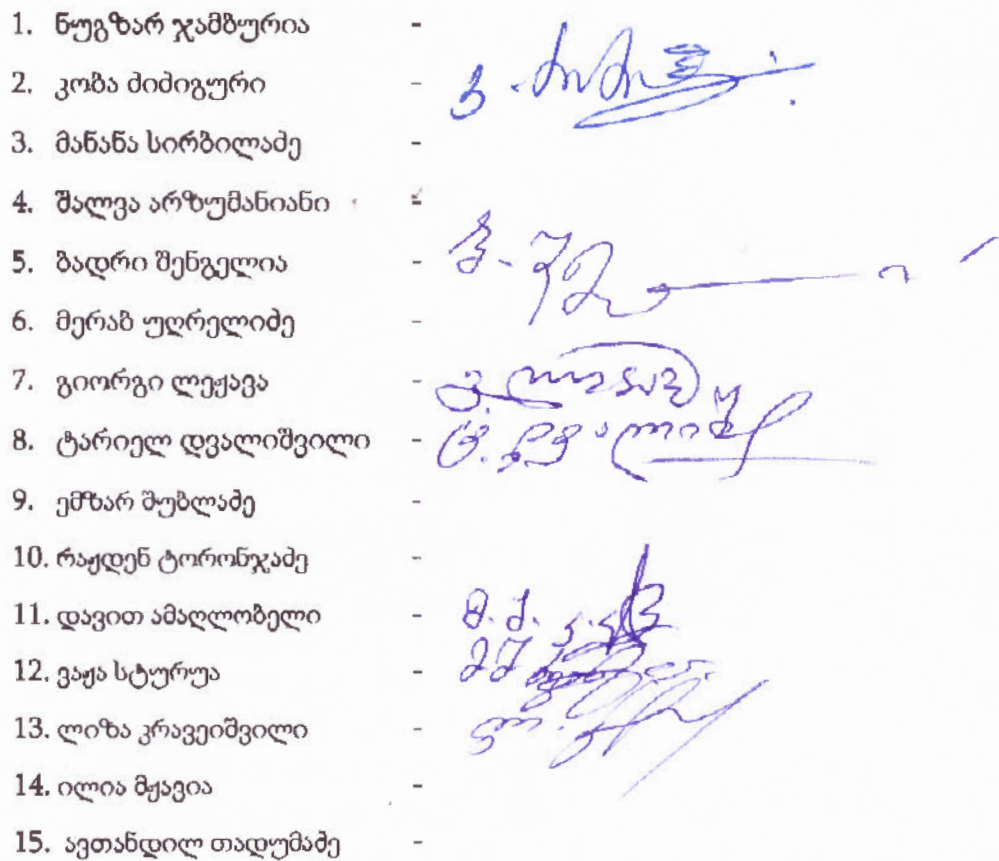 1. ნუგზარ ჯამბურია -
2. კობა ძიძიგური -
3. მანანა სირბილაძე -
4. შალვა არზუმანიანი -
5. ბადრი შენგელია -
6. მერაბ უღრელიძე -
7. გიორგი ლეჟავა -
8. ტარიელ დვალიშვილი -
9. ემზარ შუბლაძე
10. რაჟდენ ტორონჯაძე -
11. დავით ამაღლობელი -
12. ვაჟა სტურუა -
13. ლიზა კრავეიშვილი -
14. ილია მჟავია -
15. ავთანდილ თადუმაძე -